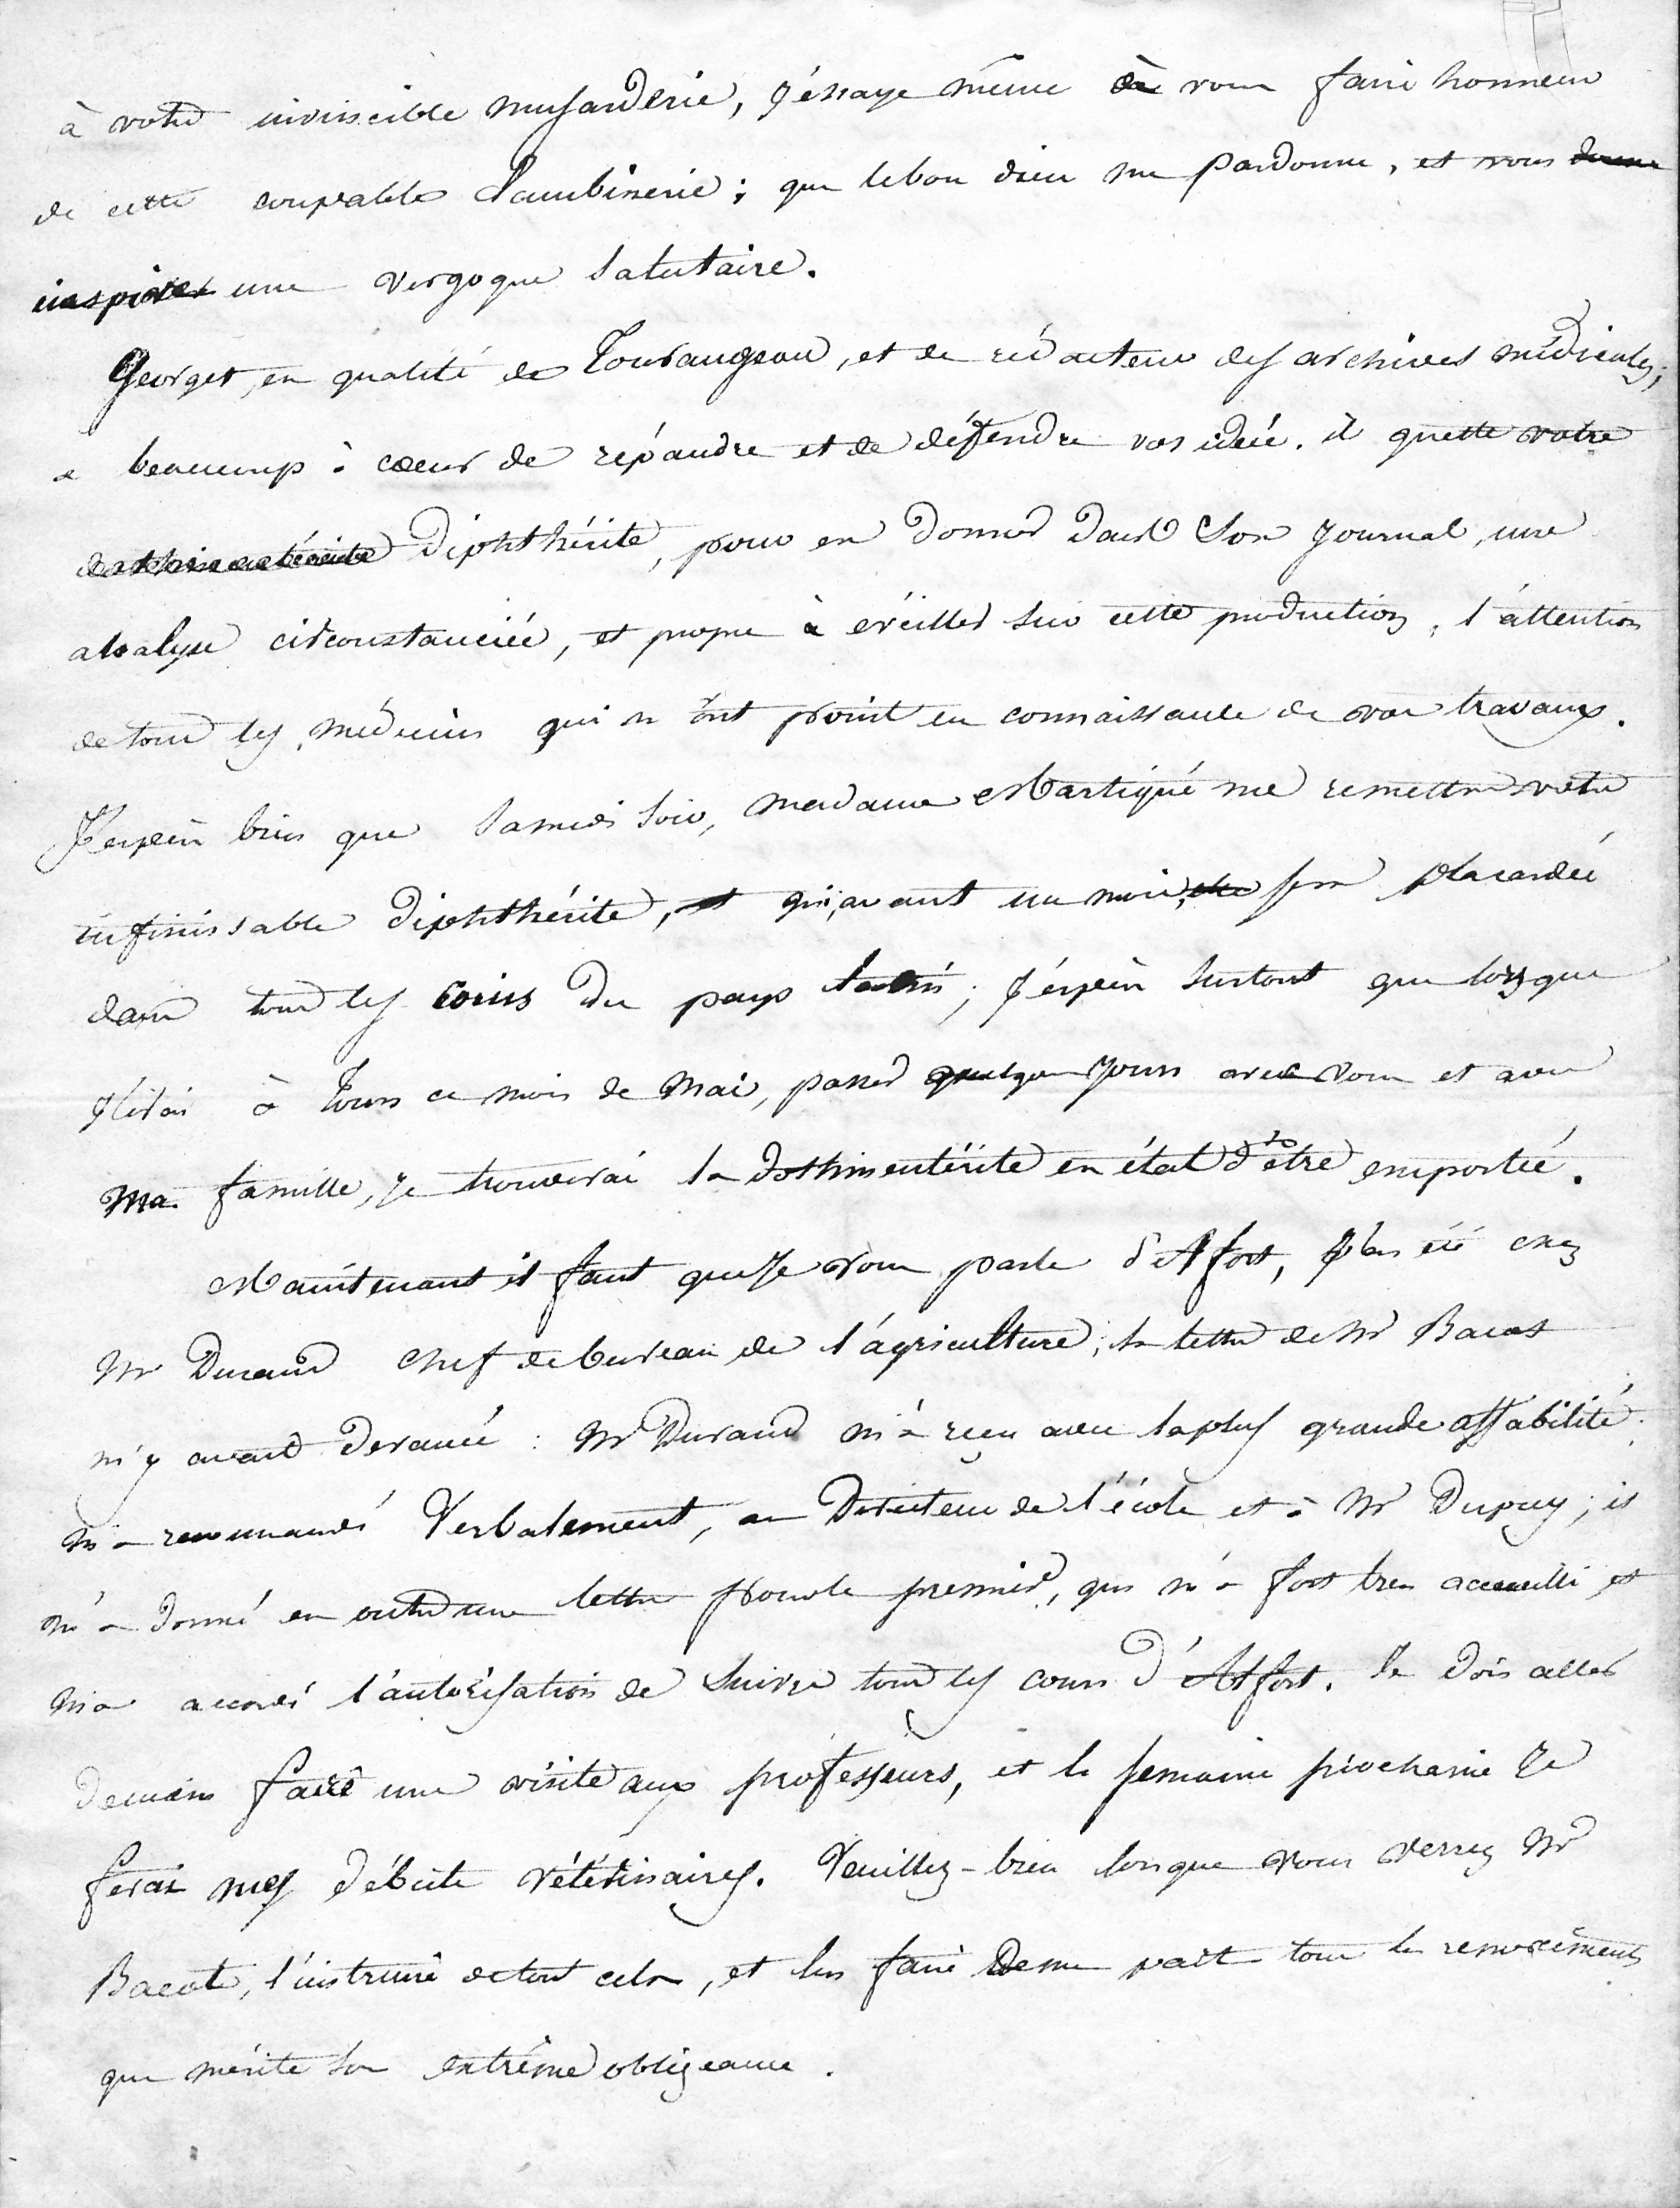 à votre invinscible musarderie, j'éssaye même à vous faire honneur
de cette coupable Lambinerie; que le bon dieu me pardonne, et vous donne
inspirer une vergogne salutaire.
Georget, en qualité de Tourangeau, et de rédacteur des archives médicales,
a beaucoup à coeur de répandre et de défendre vos idées. il guette votre
dothinentérite Diphthérite, pour en donner dans son journal, une
analyse circonstanciée, et propre à éveiller sur cette production, l'attention
de tous les médecins qui n'ont point eu connaissance de vos travaux.
J'espère bien que samedi soir, madame Martigné me remettra votre
infinissable diphthérite, et qui, avant un mois, sera placardée
dans tous les coins du pays latin; j'éspère surtout que lorsque
j'irai à Tours ce mois de mai, passer quelques jours avec vous et avec
ma famille, je trouverai la dothinentérite en état d'être emportée.
Maintenant il faut que je vous parle d'Alfort, j'ai été chez
Mr Durand chef de bureau de l'agriculture; la lettre de Mr Bacot
m'y avait devancé: Mr Durand m'a reçu avec la plus grande affabilité.
m'a recommandé Verbalement, au Directeur de l'école et à Mr Dupuy; il
m'a donné en outre une lettre pour le premier, qui m'a fort bien accueilli et
m'a accordé l'autorisation de suivre tous les cours d'Alfort. Je dois aller
demain faire une visite aux professeurs, et la semaine prochaine je
ferai mes débuts vétérinaires. Veuillez-bien lorsque vous verrez Mr
Bacot, l'instruire de tout cela, et lui faire de ma part tous les remerciments
que mérite son extrême obligeance.